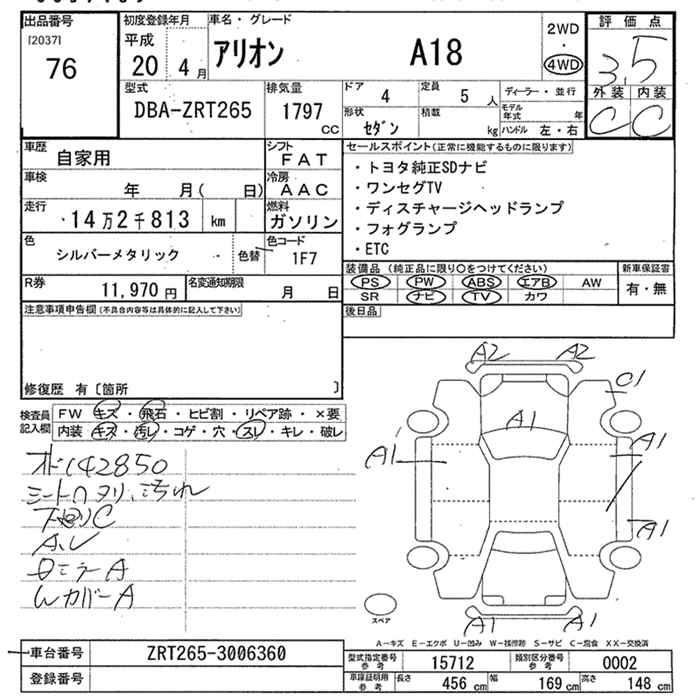 出品番号
[2037]
76
初度登録年月
平成
20 4 月
車名・グレード
アリオン A18
2WD
・
4WD
評価点
3.5
外装 内装
C C
型式
DBA-ZRT265
排気量
1797 cc
ドア 4
定員 5 人
形状 セダン
積載 kg
ディーラー・並行
モデル年式 年
ハンドル 左・右
車歴 自家用
シフト FAT
車検 年 月( 日)
冷房 AAC
走行 14万2千813 km
燃料 ガソリン
色 シルバーメタリック 色替
色コード 1F7
R券 11,970 円
名変通知期限 月 日
セールスポイント(正常に機能するものに限ります)
・トヨタ純正SDナビ
・ワンセグTV
・ディスチャージヘッドランプ
・フォグランプ
・ETC
装備品(純正品に限り○をつけてください)
PS PW ABS エアB AW
SR ナビ TV カワ
新車保証書
有・無
後日品
注意事項申告欄(不具合内容等は具体的に記入して下さい)
修復歴 有〔箇所 〕
検査員記入欄
FW キズ・飛石・ヒビ割・リペア跡・×要
内装 キズ・汚レ・コゲ・穴・スレ・キレ・破レ
142850
下廻りC
DミラーA
WカバーA
A2 A2
C1
A1
A1 A1
A1
A1 A1
スペア
A−キズ E−エクボ U−凹み W−補修跡 S−サビ C−腐食 XX−交換済
車台番号 ZRT265-3006360
登録番号
型式指定番号 参考 15712
類別区分番号 参考 0002
車庫証明用 参考 長さ 456 cm 幅 169 cm 高さ 148 cm